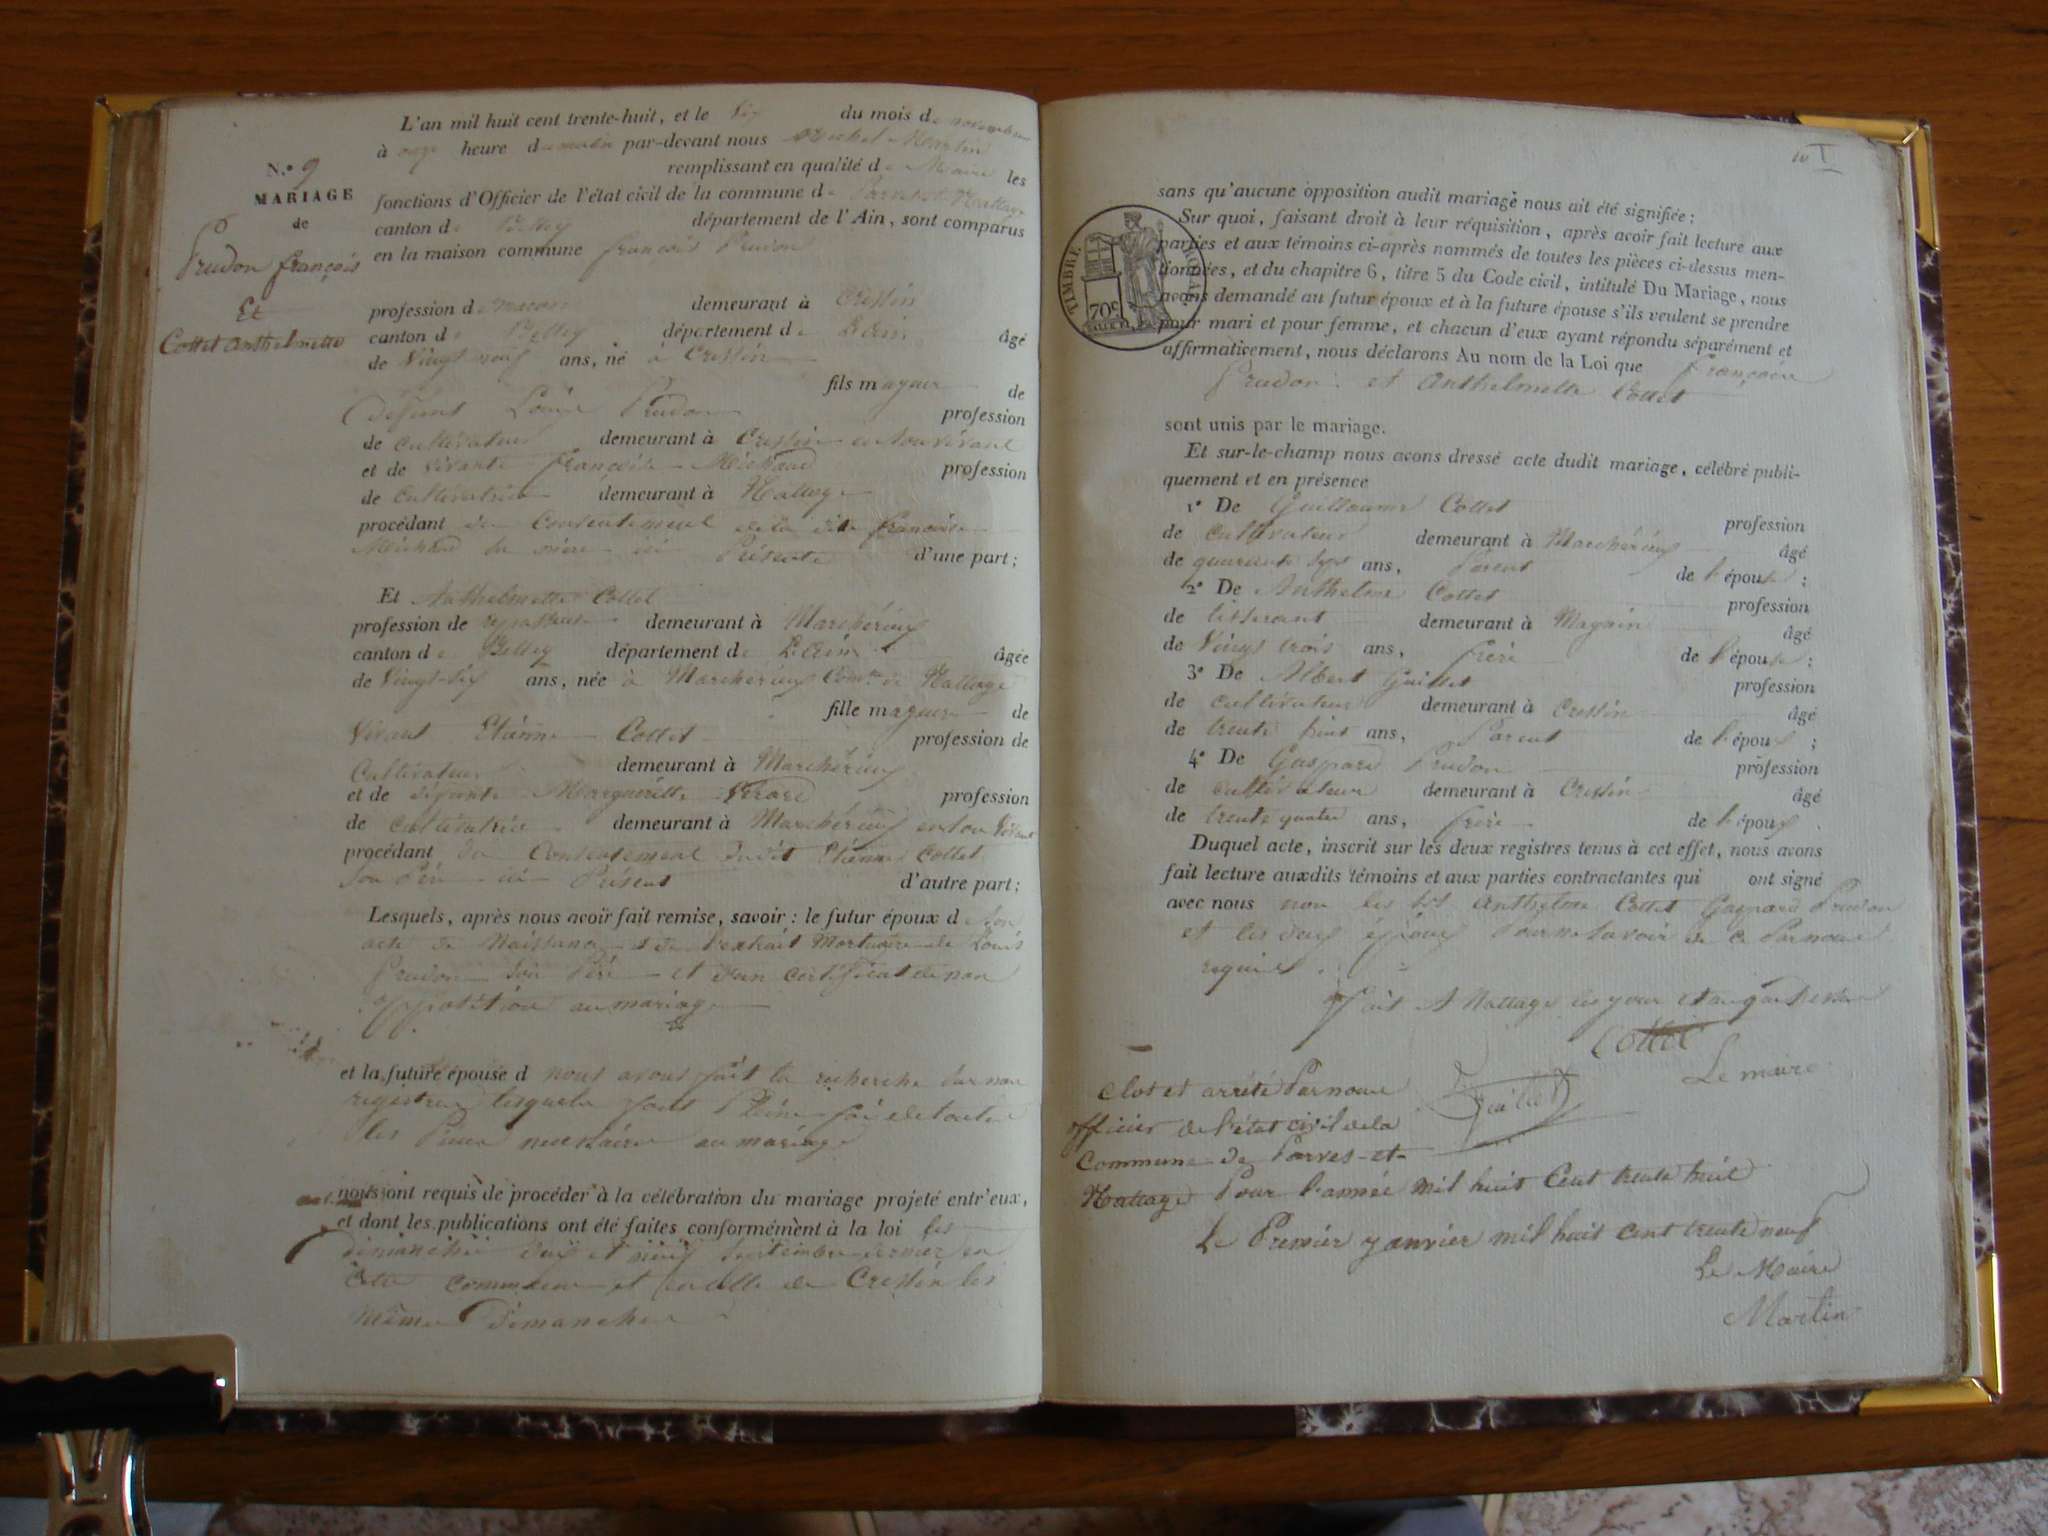 L'an mil huit cent trente-huit, et le six du mois de novembre
à onze heure du matin par-devant nous Michel Martin
remplissant en qualité de Maire les
fonctions d'Officier de l'état civil de la commune de Parves et Nattage
canton de Belley département de l'Ain, sont comparus
en la maison commune françois Prudon
N.º 9
MARIAGE
de
Prudon françois
Et
Cottet anthelmette
profession de maçon demeurant à Cressin
canton de Belley département de L'ain âgé
de Vingt neuf ans, né à Cressin
fils majeur de
Défunt Louis Prudon profession
de cultivateur demeurant à Cressin en son vivant
et de vivante françoise Michaud profession
de cultivatrice demeurant à Nattage
procédant du Consentement de la dite françoise
Michaud sa mère ici Présente d'une part;
Et Anthelmette Cottet
profession de demeurant à Marchérieux
canton de Belley département de L'ain âgée
de Vingt-six ans, née à Marchérieux Com.ne de Nattage
fille majeure de
Vivant Etienne Cottet profession de
Cultivateur demeurant à Marchérieux
et de défunte Margueritte profession
de cultivatrice demeurant à Marchérieux en son Vivant
procédant du Consentement dudit Etienne Cottet
son Père ici Présent d'autre part;
Lesquels, après nous avoir fait remise, savoir: le futur époux de son
acte de Naissance de l'extrait Mortuaire de Louis
Prudon son Père et d'un certificat de non
opposition au mariage
et la future épouse d nous avons fait la recherche sur nos
registres lesquels font Pleine foi de toutes
les Pièces necessaire au mariage
nous ont requis de procéder à la célébration du mariage projeté entr'eux,
et dont les publications ont été faites conformément à la loi les
dimanches deux et neuf septembre dernier en
cette commune et en celle de Cressin les
même Dimanches
10 I
sans qu'aucune opposition audit mariage nous ait été signifiée;
Sur quoi, faisant droit à leur réquisition, après avoir fait lecture aux
parties et aux témoins ci-après nommés de toutes les pièces ci-dessus men-
tionnées, et du chapitre 6, titre 5 du Code civil, intitulé Du Mariage, nous
avons demandé au futur époux et à la future épouse s'ils veulent se prendre
pour mari et pour femme, et chacun d'eux ayant répondu séparément et
affirmativement, nous déclarons Au nom de la Loi que françois
Prudon et Anthelmette Cottet
TIMBRE ROYAL
70c
sont unis par le mariage.
Et sur-le-champ nous avons dressé acte dudit mariage, célébré publi-
quement et en présence
1º De Guillaume Cottet profession
de cultivateur demeurant à Marchérieux âgé
de quarante sept ans, Parent de l'épouse;
2º De Anthelme Cottet profession
de tisserant demeurant à Magnin âgé
de Vingt trois ans, frère de l'épouse;
3º De Albert Guillet profession
de cultivateur demeurant à Cressin âgé
de trente huit ans, Parent de l'époux;
4º De Gaspard Prudon profession
de cultivateur demeurant à Cressin âgé
de trente quatre ans, frère de l'époux.
Duquel acte, inscrit sur les deux registres tenus à cet effet, nous avons
fait lecture auxdits témoins et aux parties contractantes qui ont signé
avec nous non les dts Anthelme Cottet Gaspard Prudon
et les deux époux Pour ne savoir de ce Par nous
requis.
Fait A Nattage les jour et an que dessus
Cottet
Le maire
Guillet
Clos et arrété Par nous
officier de l'état civil de la
Commune de Parves-et-
Nattage Pour l'année mil huit Cent trente huit
Le Premier janvier mil huit cent trente neuf
Le Maire
Martin